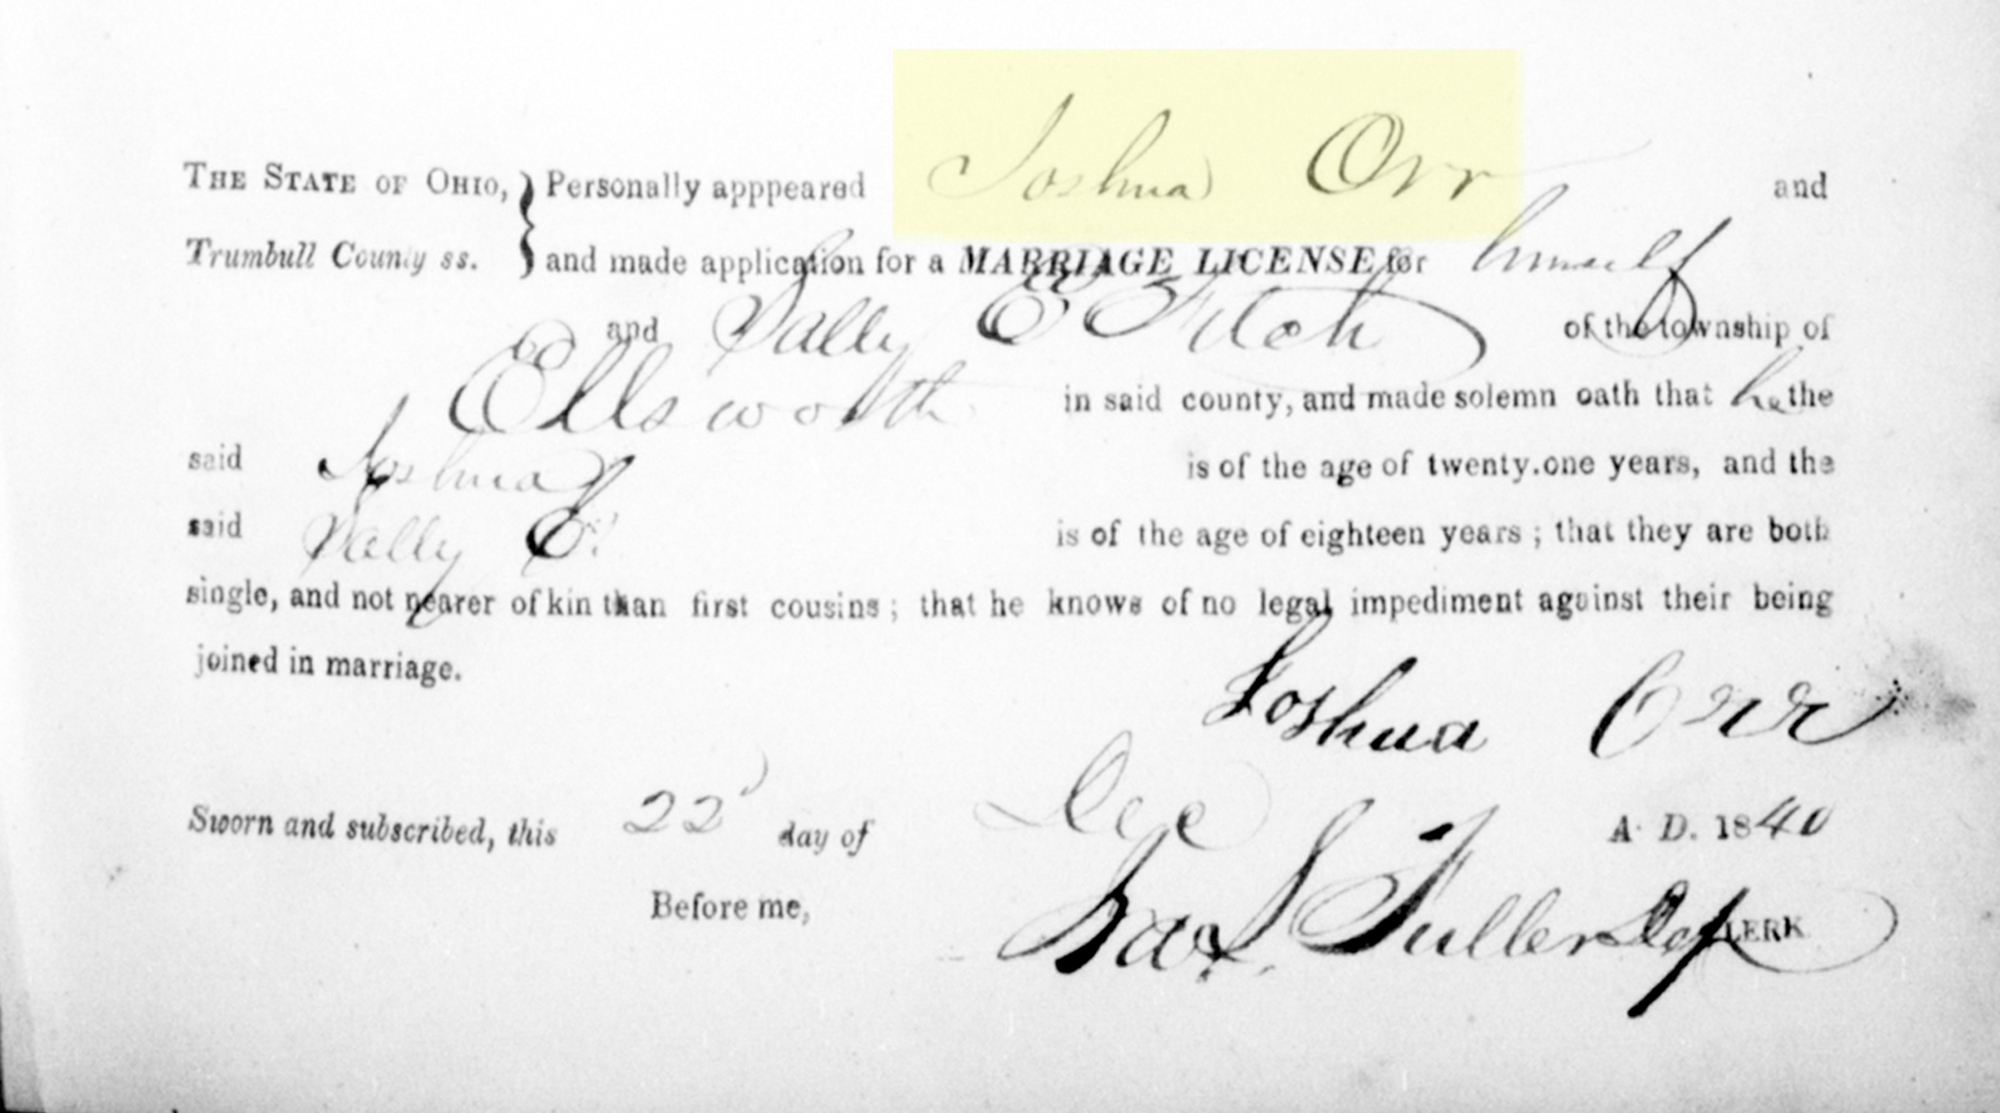 THE STATE OF OHIO, } Personally apppeared Joshua Orr and
Trumbull County ss. } and made application for a MARRIAGE LICENSE for himself
and Sally E Fitch of the township of
Ellsworth in said county, and made solemn oath that he the
said Joshua is of the age of twenty.one years, and the
said Sally E. is of the age of eighteen years ; that they are both
single, and not nearer of kin than first cousins ; that he knows of no legal impediment against their being
joined in marriage.
Joshua Orr
Sworn and subscribed, this 22 day of Dec A. D. 1840
Before me,
Fuller Dep CLERK